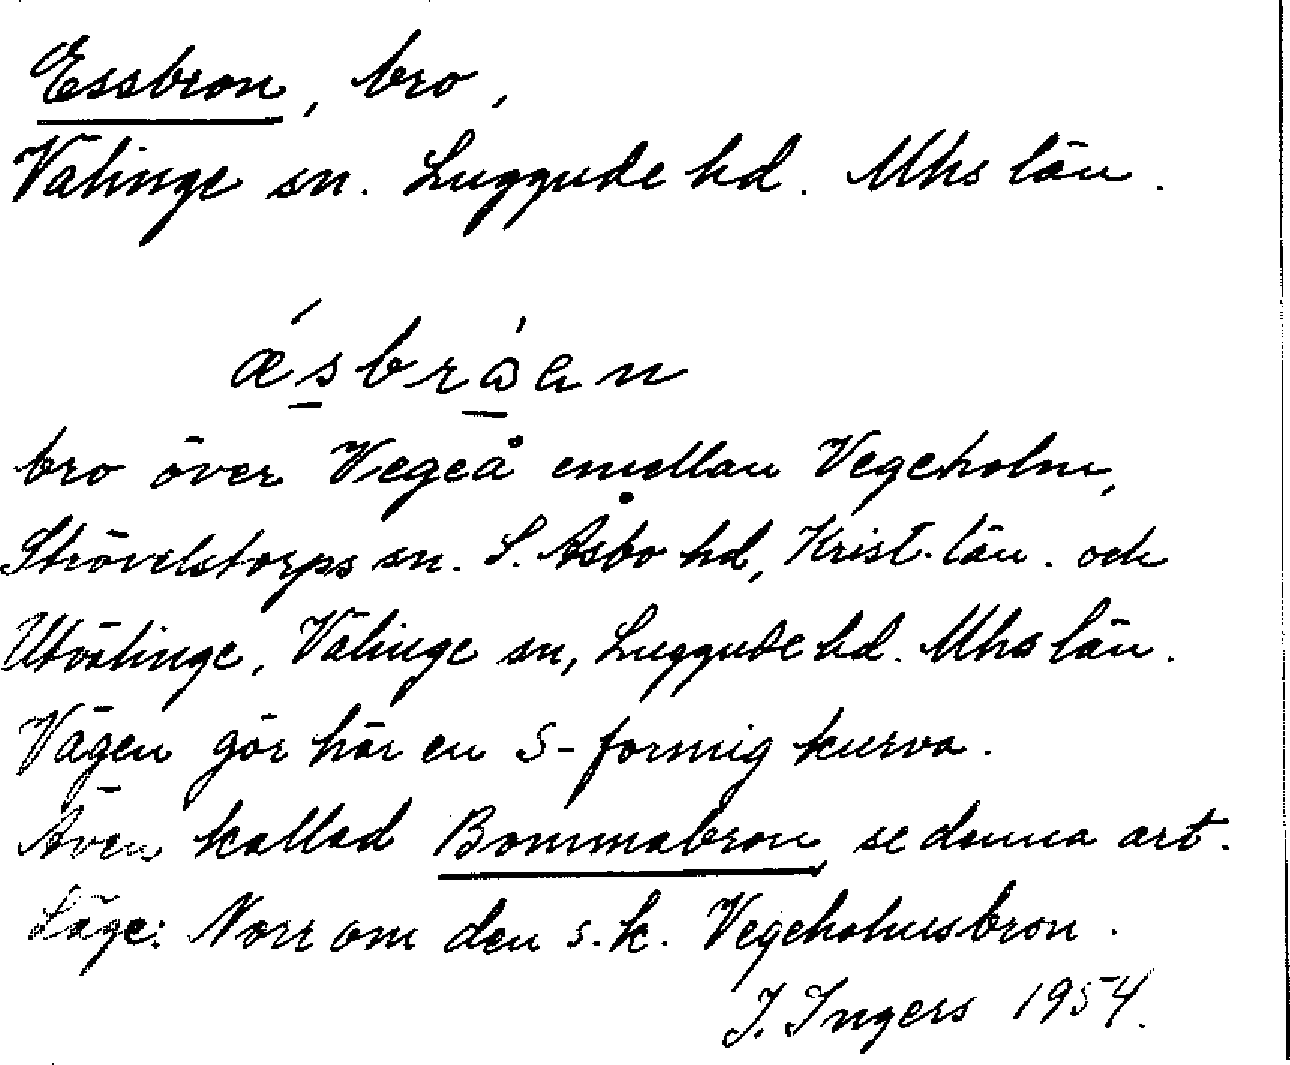 Essbron, bro,
Välinge sn. Luggude hd. Mhs län.
æ´sbrɷ`an
bro över Vegeå emellan Vegeholm,
Strövelstorps sn. S. Åsbo hd, Krist. län. och
Utvälinge, Välinge sn, Luggude hd. Mhs län.
Vägen gör här en S-formig kurva.
Även kallad Bommabron, se denna art.
Läge: Norr om den s.k. Vegeholmsbron.
I. Ingers 1954.